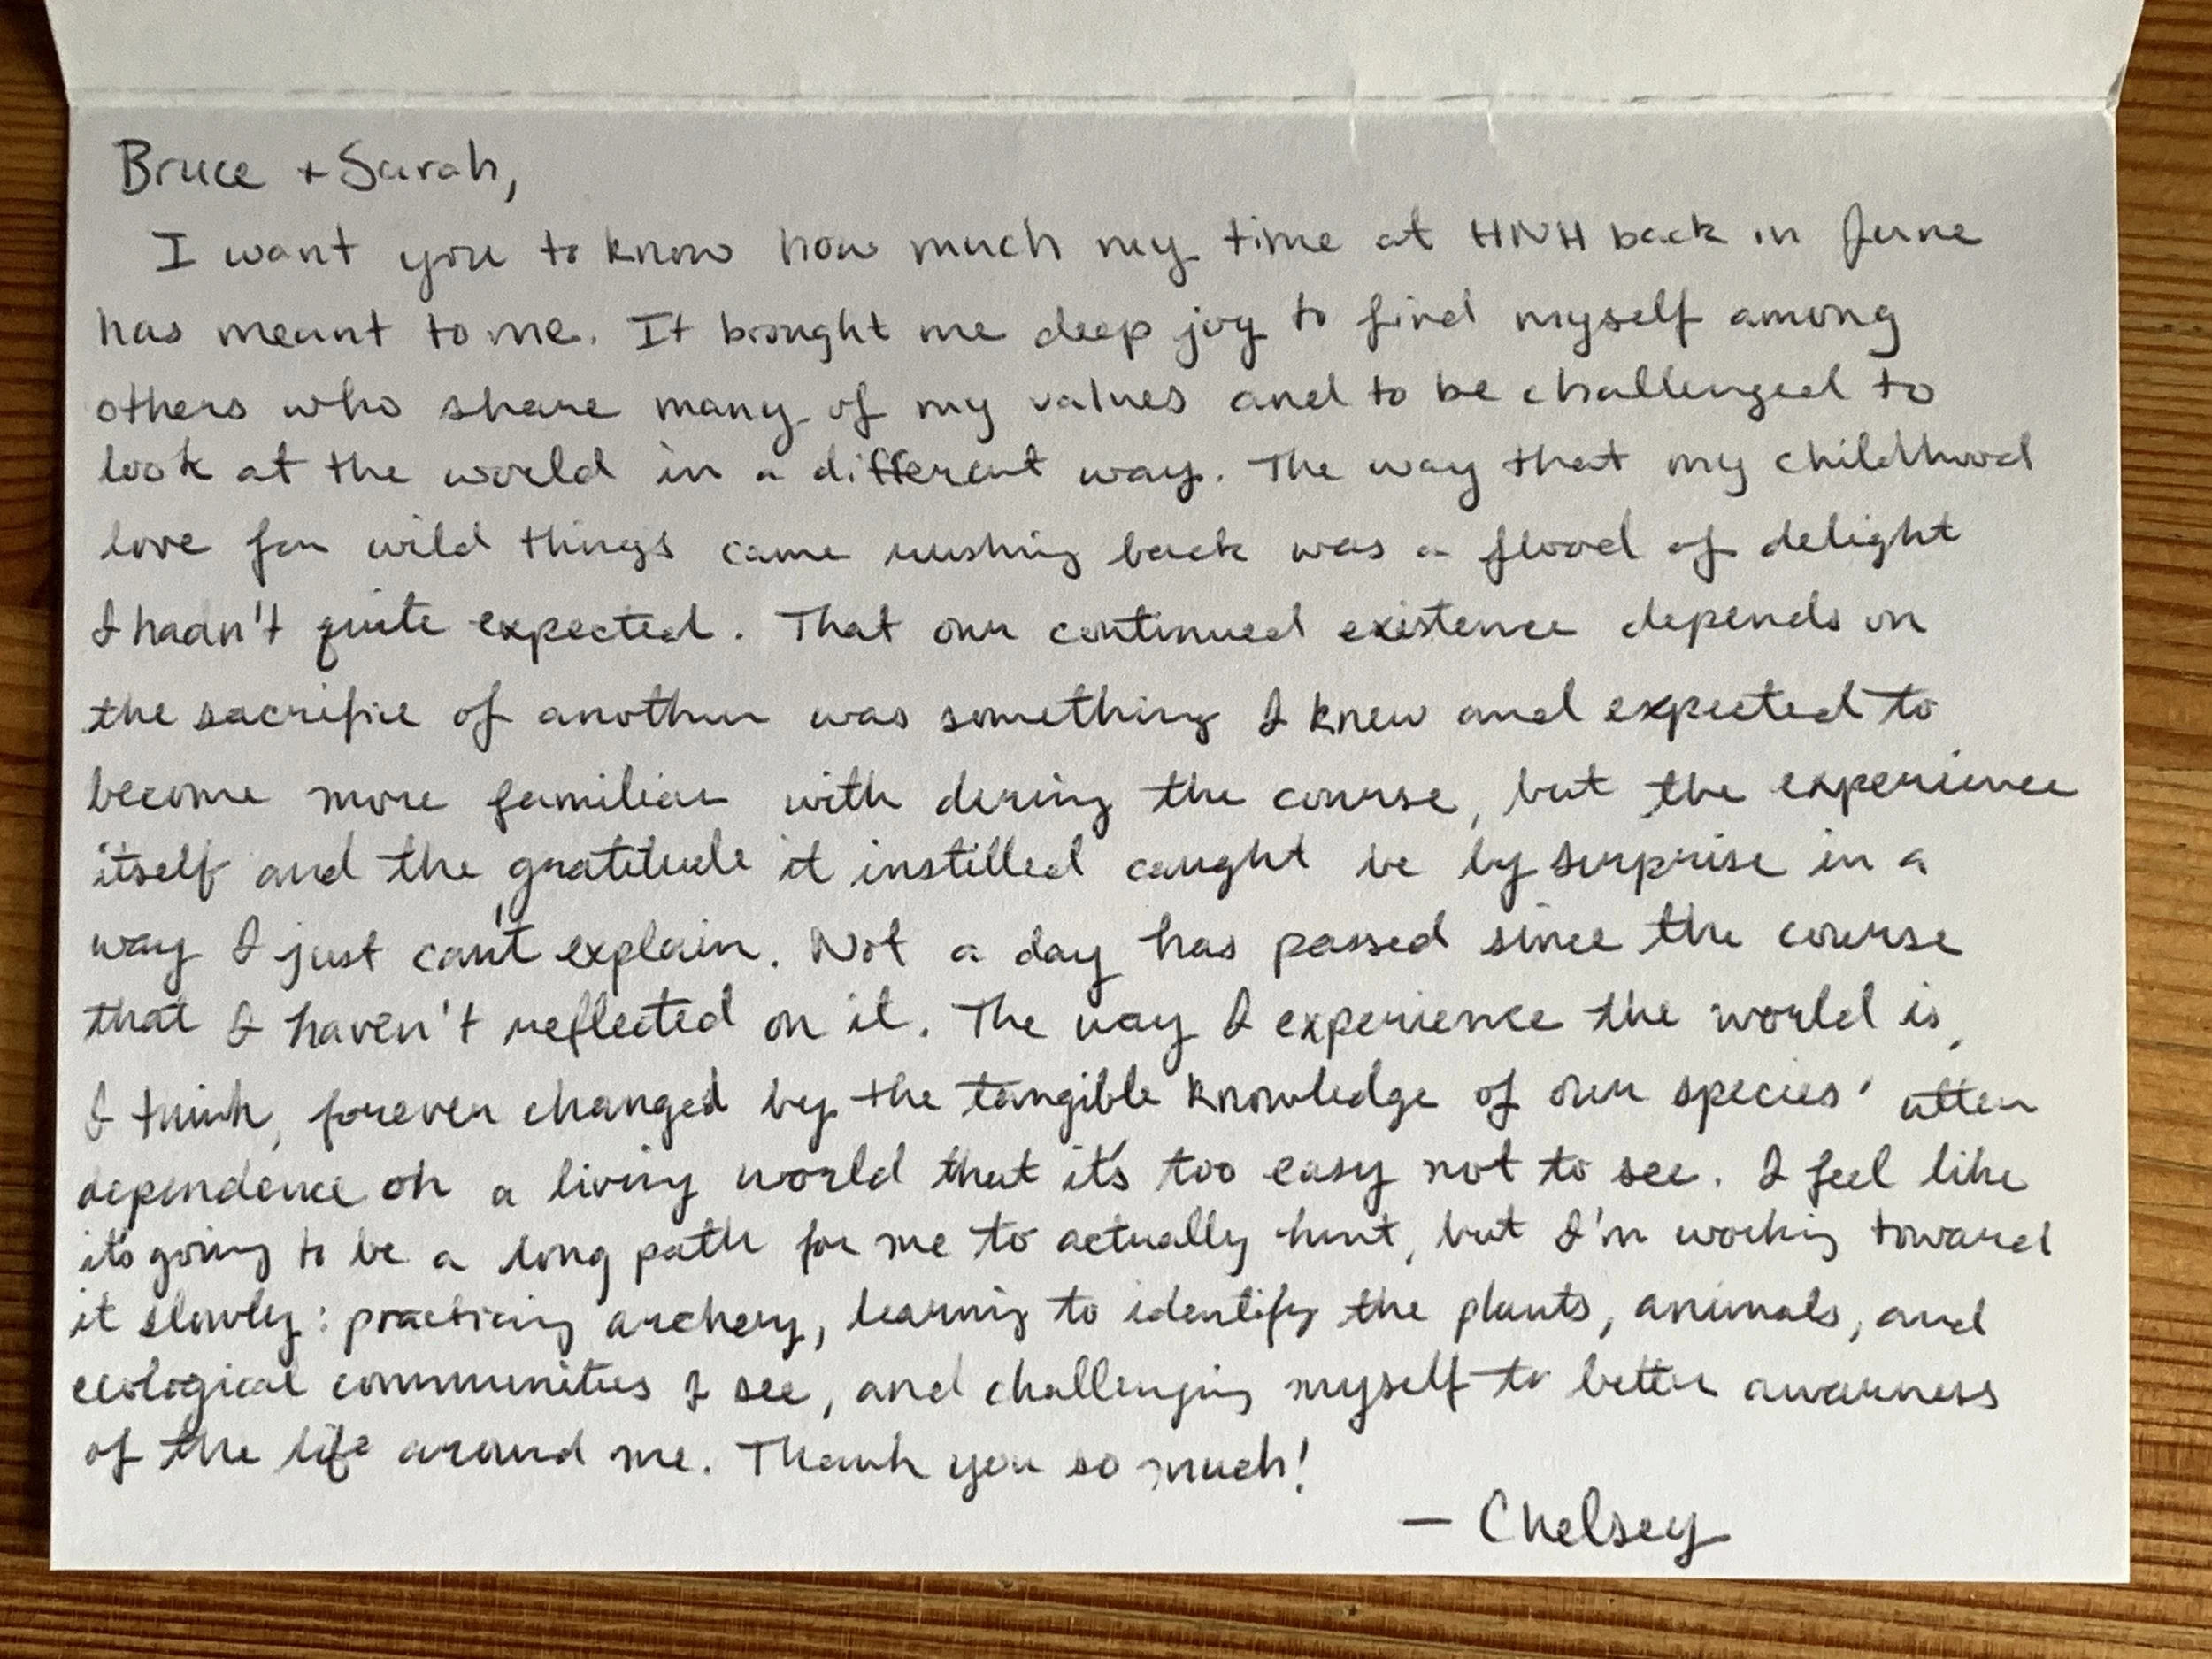 Bruce + Sarah,
I want you to know how much my time at HNH back in June
has meant to me. It brought me deep joy to find myself among
others who share many of my values and to be challenged to
look at the world in a different way. The way that my childhood
love for wild things came rushing back was a flood of delight
I hadn't quite expected. That our continued existence depends on
the sacrifice of another was something I knew and expected to
become more familiar with during the course, but the experience
itself and the gratitude it instilled caught be by surprise in a
way I just can't explain. Not a day has passed since the course
that I haven't reflected on it. The way I experience the world is,
I think, forever changed by the tangible knowledge of our species' utter
dependence on a living world that it's too easy not to see. I feel like
it's going to be a long path for me to actually hunt, but I'm working toward
it slowly: practicing archery, learning to identify the plants, animals, and
ecological communities I see, and challenging myself to better awarness
of the life around me. Thank you so much!
— Chelsey